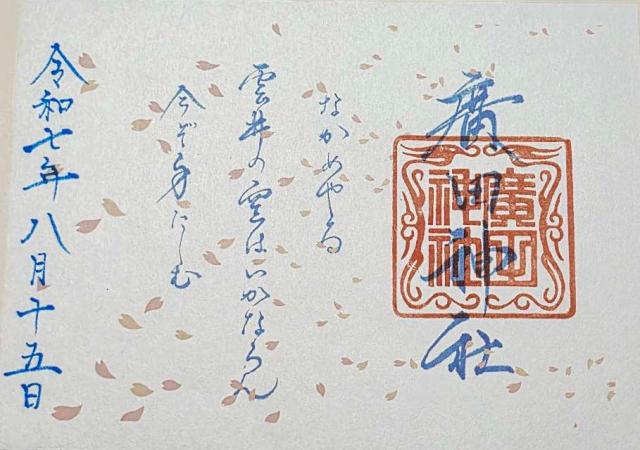 廣田神社
廣田神社
なかめやる
雲井の はいかならん
今ぞ にしむ
令和七年八月十五日